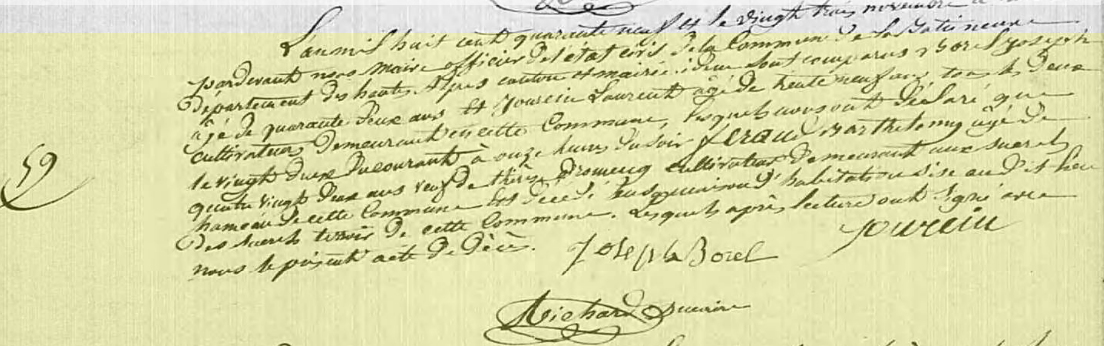 L'an mil huit cent quarante neuf et le vingt trois novembre à
pardevant nous maire officier de l'état civil de la Commune de la Batie neuve
département des hautes Alpes canton et mairie idem sont comparus Borel Joseph
âgé de quarante deux ans et Jourcin Laurent agé de trente neuf ans tous les deux
cultivateurs demeurant en cette Commune, lesquels nous ont déclaré que
le vingt deux du courant à onze heures du soir feraud Barthelemy agé de
quatre vingt deux ans veuf de thérèse cultivateur demeurant aux
hameau de cette Commune est décédé dans sa maison d'habitation sise au dit lieu
des terroir de cette Commune. Lesquels après lecture ont signé avec
nous le présent acte de décès.
59
Joseph Borel
Jourcin
Richard maire